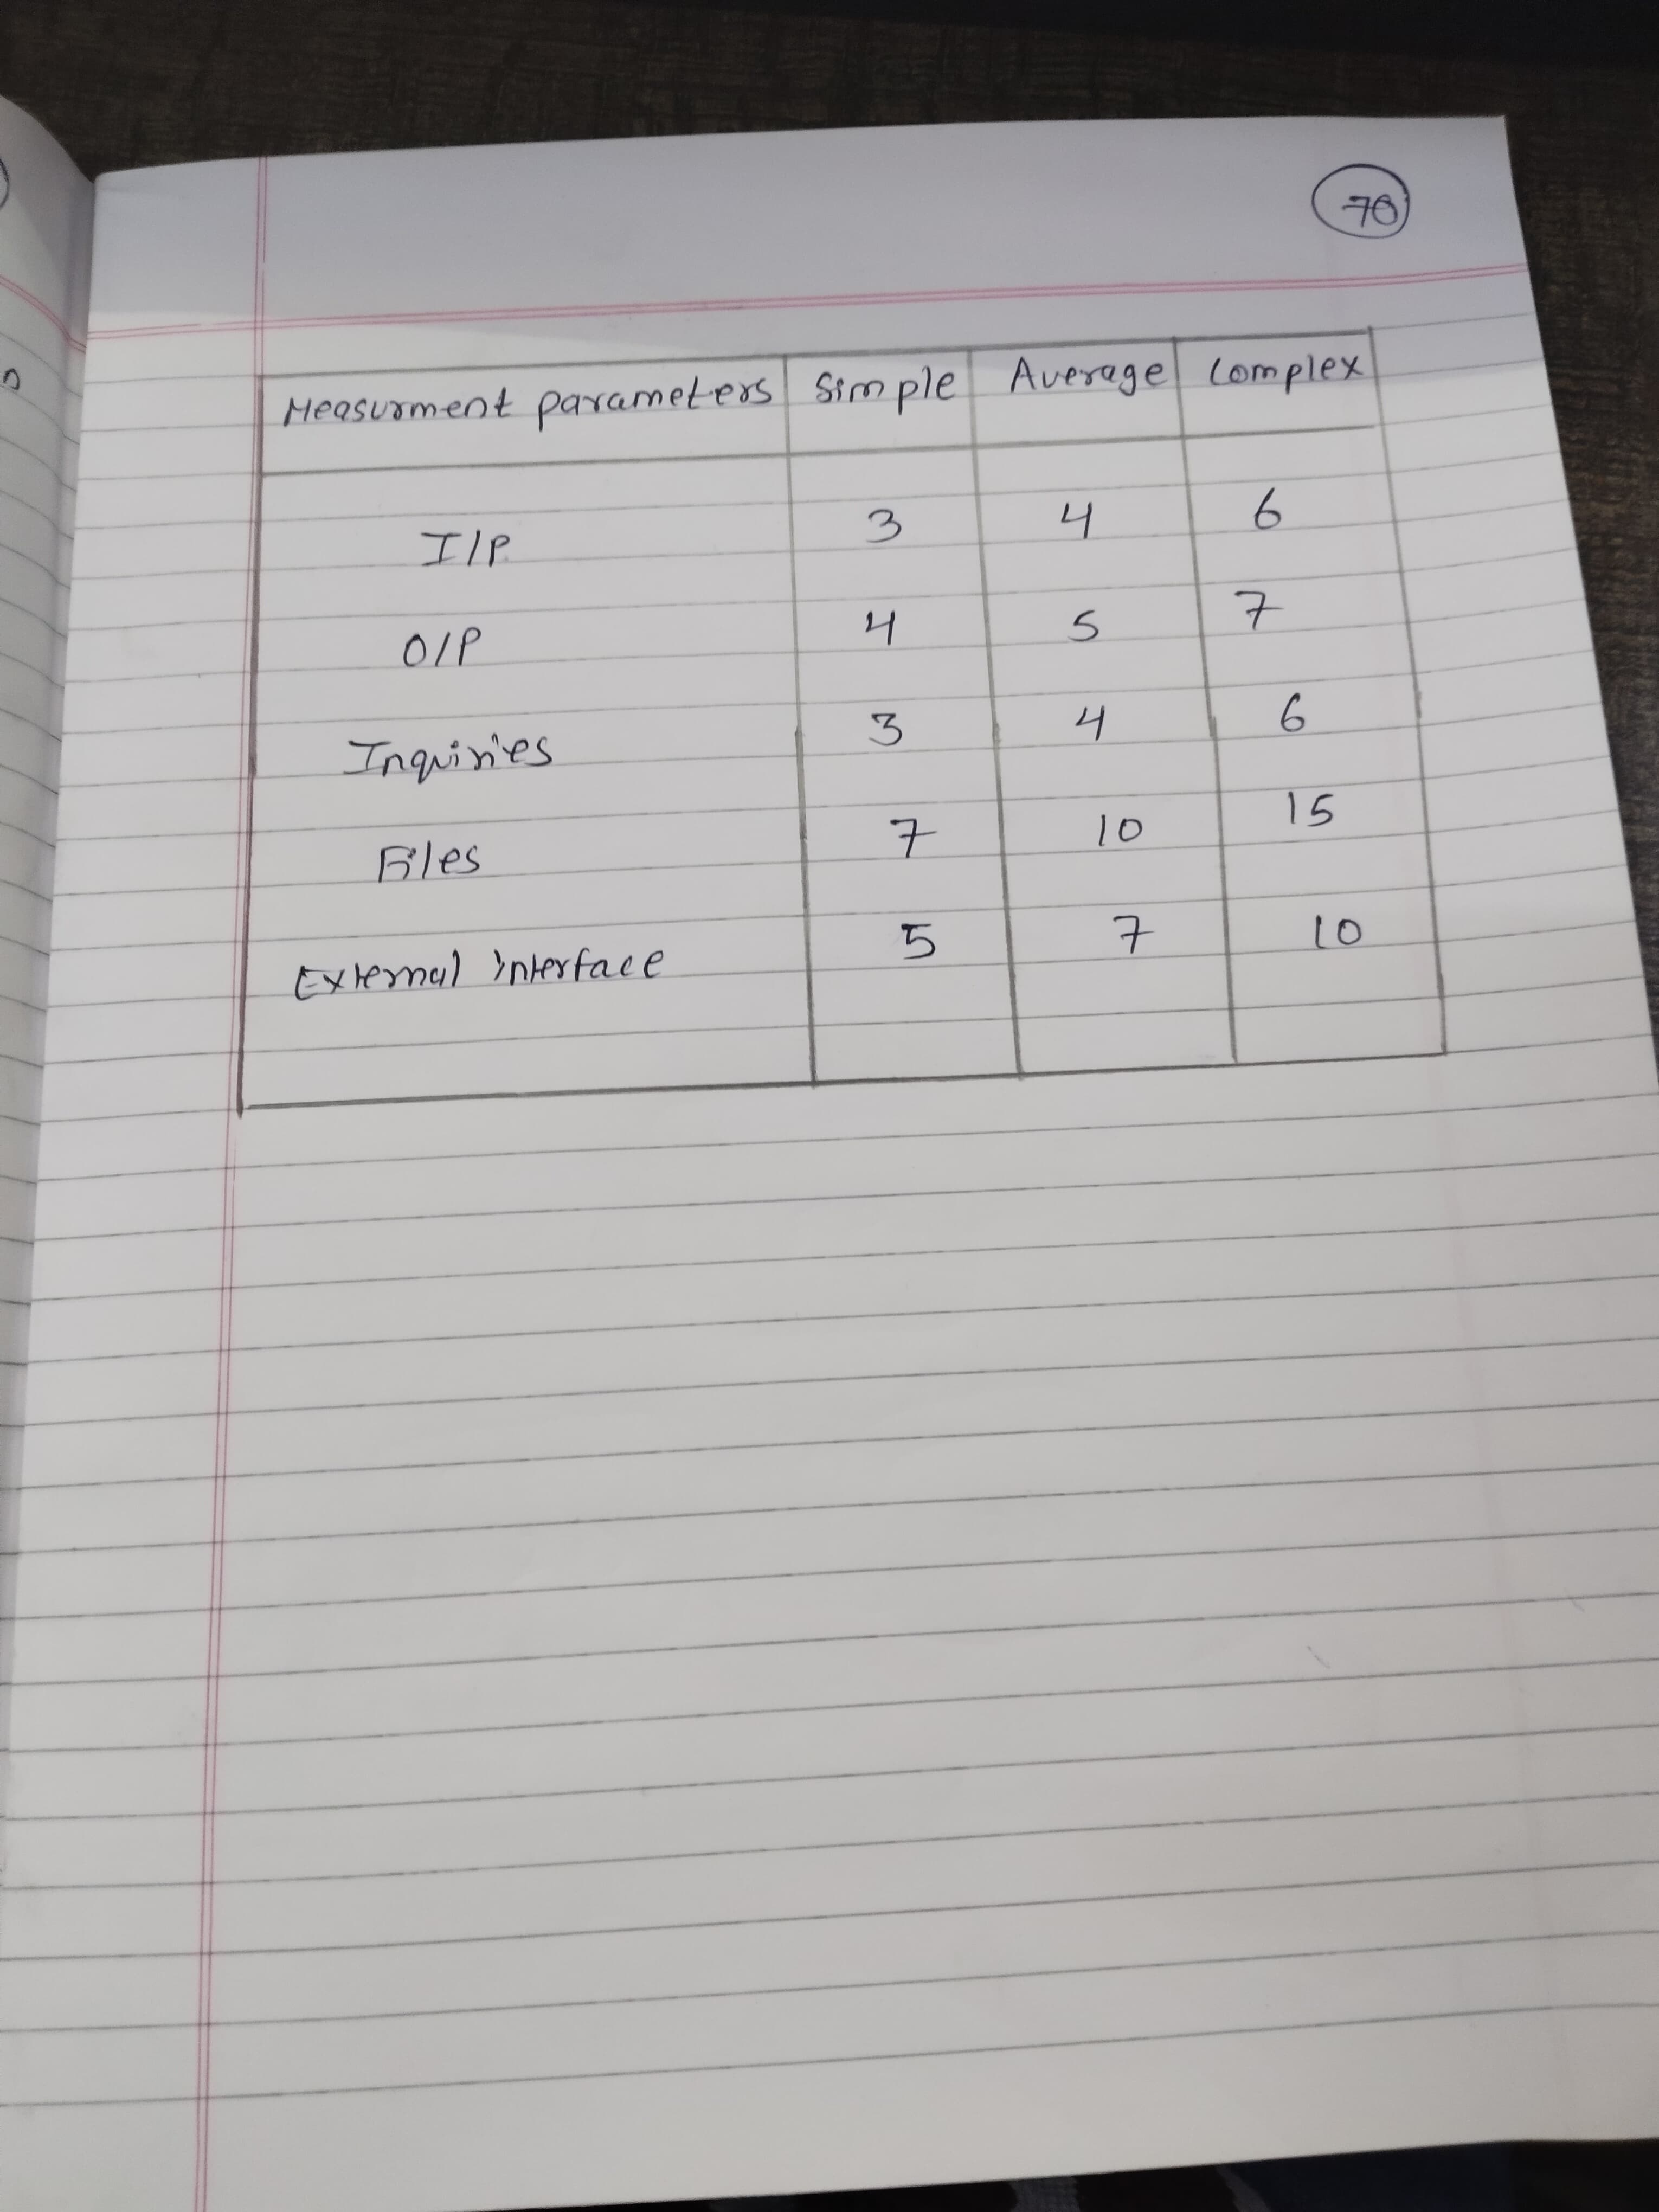 70
Measurment parameters Simple Average Complex
I/P 3 4 6
O/P 4 5 7
Inquiries 3 4 6
Files 7 10 15
External interface 5 7 10